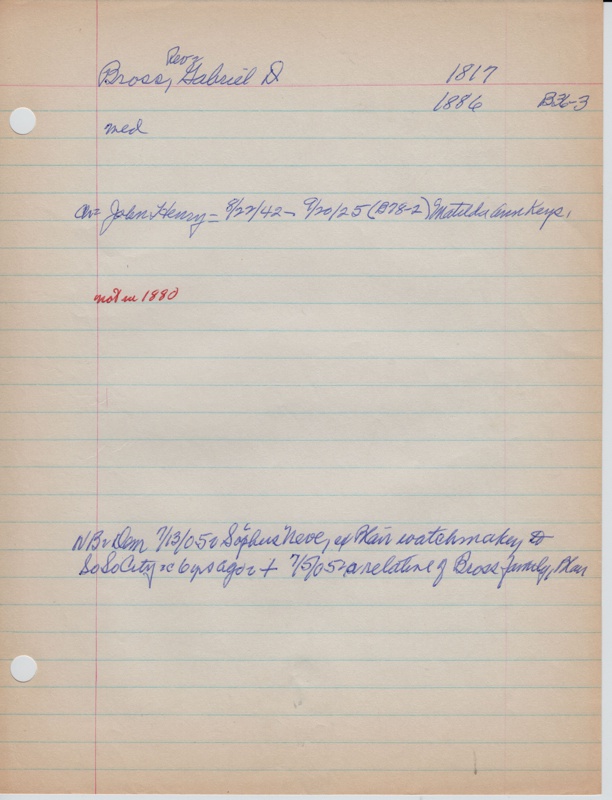 Rev
Bross, Gabriel D 1817
1886 B36-3
med
Ch= John Henry = 8/22/42 - 9/20/25 (B78-2) Matilda Ann Keys,
not in 1880
NB: Dem 7/13/05: "Sophus" Neve, ex Plair watchmaker, to
So So City: c 6 yrs ago: + 7/5/05: a relative of Bross family, Plair